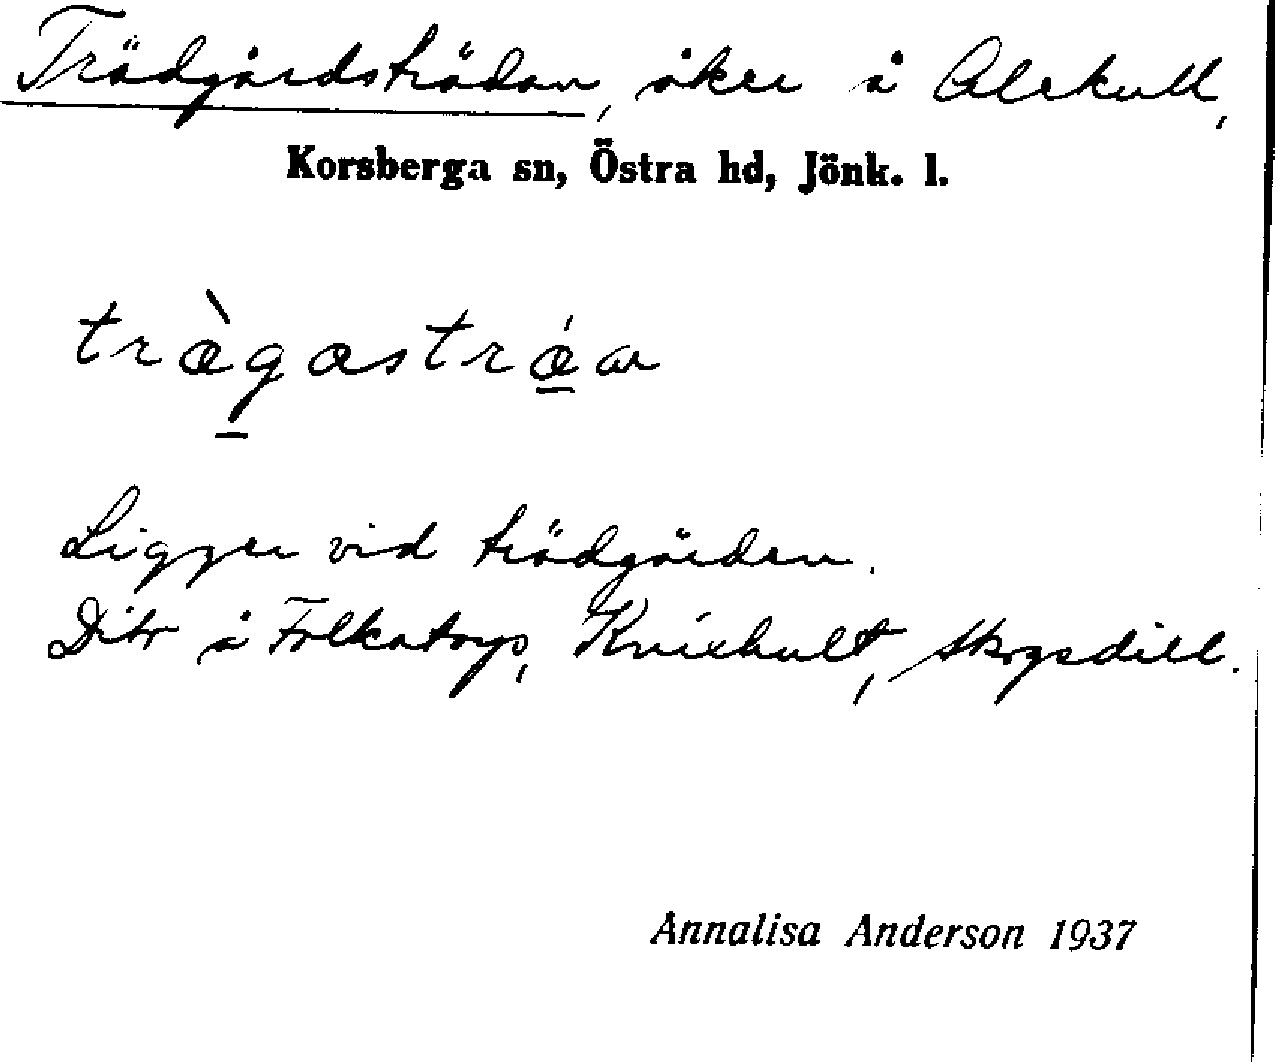 Trädgårdsträdan, åker å Alekull,
Korsberga sn, Östra hd, Jönk. l.
træ̀gastrǽan
Ligger vid trädgården.
Dito å Folkatorp, Knixhult, Skogsdill.
Annalisa Anderson 1937